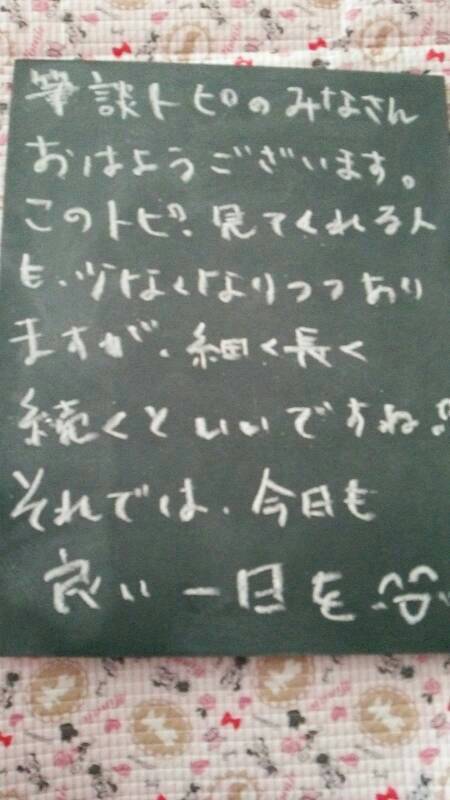 筆談トピのみなさん
おはようございます。
このトピ、見てくれる人
も、少なくなりつつあり
ますが、細く長く
続くといいですね!
それでは、今日も
良い一日を